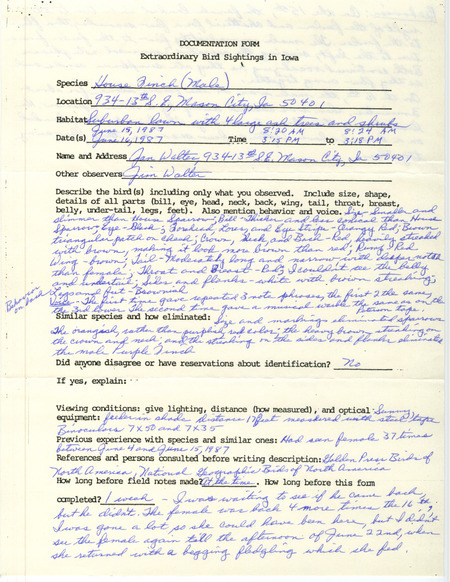 DOCUMENTATION FORM
Extraordinary Bird Sightings in Iowa
Species House Finch (Male)
Location 934-13th S.E., Mason City, Ia 50401
Habitat Suburban lawn with 4 large ash trees and shrubs
June 15, 1987 8:20 AM 8:24 AM
Date(s) June 16, 1987 Time 3:15 PM to 3:18 PM
Name and Address Jan Walter, 934-13th S.E. Mason City, Ia 50401
Other observers Jim Walter
Describe the bird(s) including only what you observed. Include size, shape,
details of all parts (bill, eye, head, neck, back, wing, tail, throat, breast,
belly, under-tail, legs, feet). Also mention behavior and voice. Size - Smaller and
slimmer than House Sparrow; Bill - Thicker and less conical than House
Sparrow; Eye - Black; Forehead, Lores, and Eye Stripe - Orangey Red; Brown
triangular patch on cheek; Crown, Neck, and Back - Red heavily streaked
with brown, making it look more brown than red; Rump - Red
Wing - brown; Tail - Moderately long and narrow with deeper notch
than female; Throat and Breast - Red; I couldn't see the belly
and undertail; sides and flanks - white with brown streaking;
Legs and feet - Brown
Behavior on back
Voice - The first time gave repeated 3 note phrases, the first 2 the same,
the 3rd lower. The second time gave a musical warble the same as on the
Peterson tape.
Similar species and how eliminated: Size and markings eliminated sparrows.
The orangish, rather than purplish, red color, the heavy brown streaking on
the crown and neck, and the streaking on the sides and flanks eliminated
the male Purple Finch
Did anyone disagree or have reservations about identification? No
If yes, explain:
Viewing conditions: give lighting, distance (how measured), and optical Sunny
equipment: feeder in shade distance 17 feet measured with steel tape
Binoculars 7x50 and 7x35
Previous experience with species and similar ones: Had seen female 37 times
between June 4 and June 15, 1987
References and persons consulted before writing description: Golden Press Birds of
North America, National Geographic Birds of North America
How long before field notes made? At the time. How long before this form
completed? 1 week - I was waiting to see if he came back
but he didn't. The female was back 4 more times the 16th;
I was gone a lot so she could have been here, but I didn't
see the female again till the afternoon of June 22nd, when
she returned with a begging fledgling which she fed.